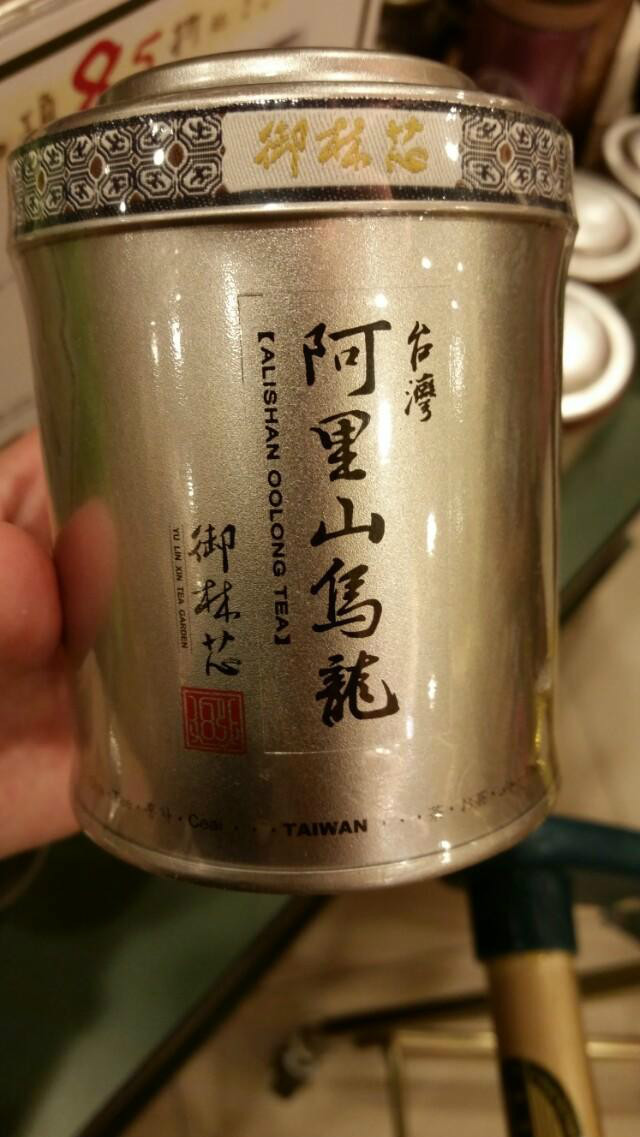 85折
御林芯
台灣
阿里山烏龍
【ALISHAN OOLONG TEA】
御林芯
YU LIN XIN TEA GARDEN
Ceai · · · TAIWAN · · · 茶 · お茶